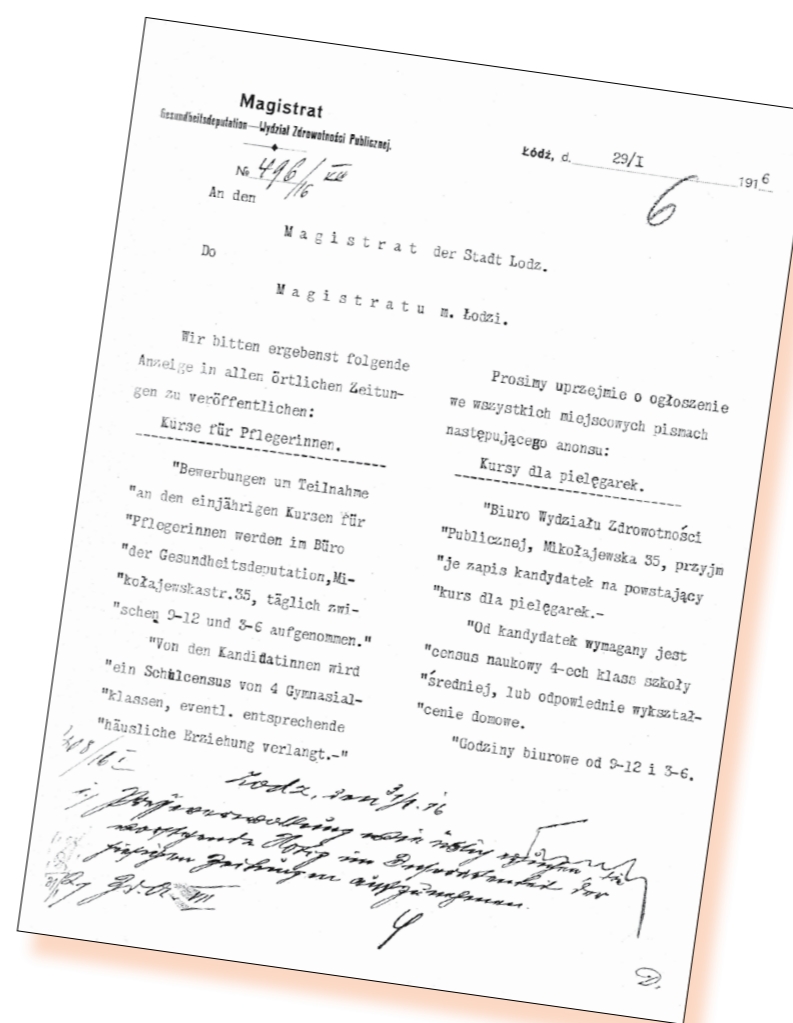 Magistrat
Gesundheitsdeputation—Wydział Zdrowotności Publicznej.
Łódź, d. 29/I 1916
№ 496/16 VII
6
An den
Magistrat der Stadt Lodz.
Do
Magistratu m. Łodzi.
Wir bitten ergebenst folgende
Anzeige in allen örtlichen Zeitun-
gen zu veröffentlichen:
Kurse für Pflegerinnen.
"Bewerbungen um Teilnahme
"an den einjährigen Kursen für
"Pflegerinnen werden im Büro
"der Gesundheitsdeputation,Mi-
"kołajewskastr.35, täglich zwi-
"schen 9-12 und 3-6 aufgenommen."
"Von den Kandidatinnen wird
"ein Schulcensus von 4 Gymnasial-
"klassen, eventl. entsprechende
"häusliche Erziehung verlangt.-"
Prosimy uprzejmie o ogłoszenie
we wszystkich miejscowych pismach
następującego anonsu:
Kursy dla pielęgarek.
"Biuro Wydziału Zdrowotności
"Publicznej, Mikołajewska 35, przyjm
"je zapis kandydatek na powstający
"kurs dla pielęgarek.-
"Od kandydatek wymagany jest
"census naukowy 4-ech klass szkoły
"średniej, lub odpowiednie wykształ-
"cenie domowe.
"Godziny biurowe od 9-12 i 3-6.
Lodz, den 31/1.16
D.